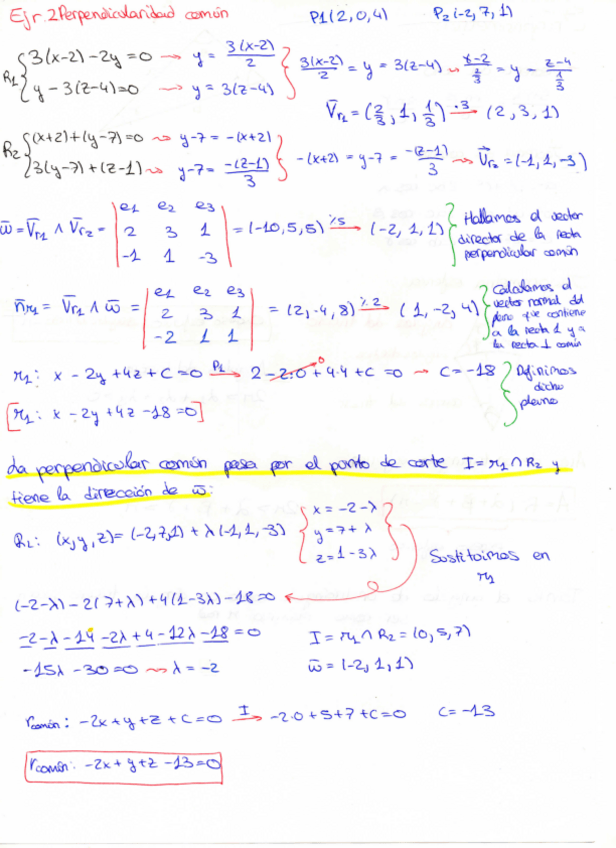 Ejr.2 Perpendicularidad común P1(2,0,4) P2(-2,7,1)
R1 { 3(x-2)-2y=0 → y = 3(x-2)/2
y-3(z-4)=0 → y = 3(z-4)
3(x-2)/2 = y = 3(z-4) → x-2 / 2/3 = y = z-4 / 1/3
V̄r1 = (2/3, 1, 1/3) ·3→ (2,3,1)
R2 { (x+2)+(y-7)=0 → y-7 = -(x+2)
3(y-7)+(z-1) → y-7 = -(z-1)/3
-(x+2) = y-7 = -(z-1)/3 → V̄r2 = (-1,1,-3)
w̄ = V̄r1 ∧ V̄r2 = | e1 e2 e3
2 3 1
-1 1 -3 | = (-10,5,5) ⁒5→ (-2,1,1)
Hallamos el vector
director de la recta
perpendicular común
n̄π1 = V̄r1 ∧ w̄ = | e1 e2 e3
2 3 1
-2 1 1 | = (2,-4,8) ⁒2→ (1,-2,4)
Calculamos el
vector normal del
plano que contiene
a la recta 1 y a
la recta ⊥ común
π1: x-2y+4z+C=0 P1→ 2-2·0+4·4+C=0 → C=-18
Definimos
dicho
plano
[π1: x-2y+4z-18=0]
La perpendicular común pasa por el punto de corte I=π1∩R2 y
tiene la dirección de w̄:
R2: (x,y,z)=(-2,7,1)+λ(-1,1,-3) { x=-2-λ
y=7+λ
z=1-3λ
Sustituimos en
π1
(-2-λ)-2(7+λ)+4(1-3λ)-18=0
-2-λ-14-2λ+4-12λ-18=0
I=π1∩R2=(0,5,7)
-15λ-30=0 → λ=-2
w̄=(-2,1,1)
rcomún: -2x+y+z+C=0 I→ -2·0+5+7+C=0 C=-13
rcomún: -2x+y+z-13=0